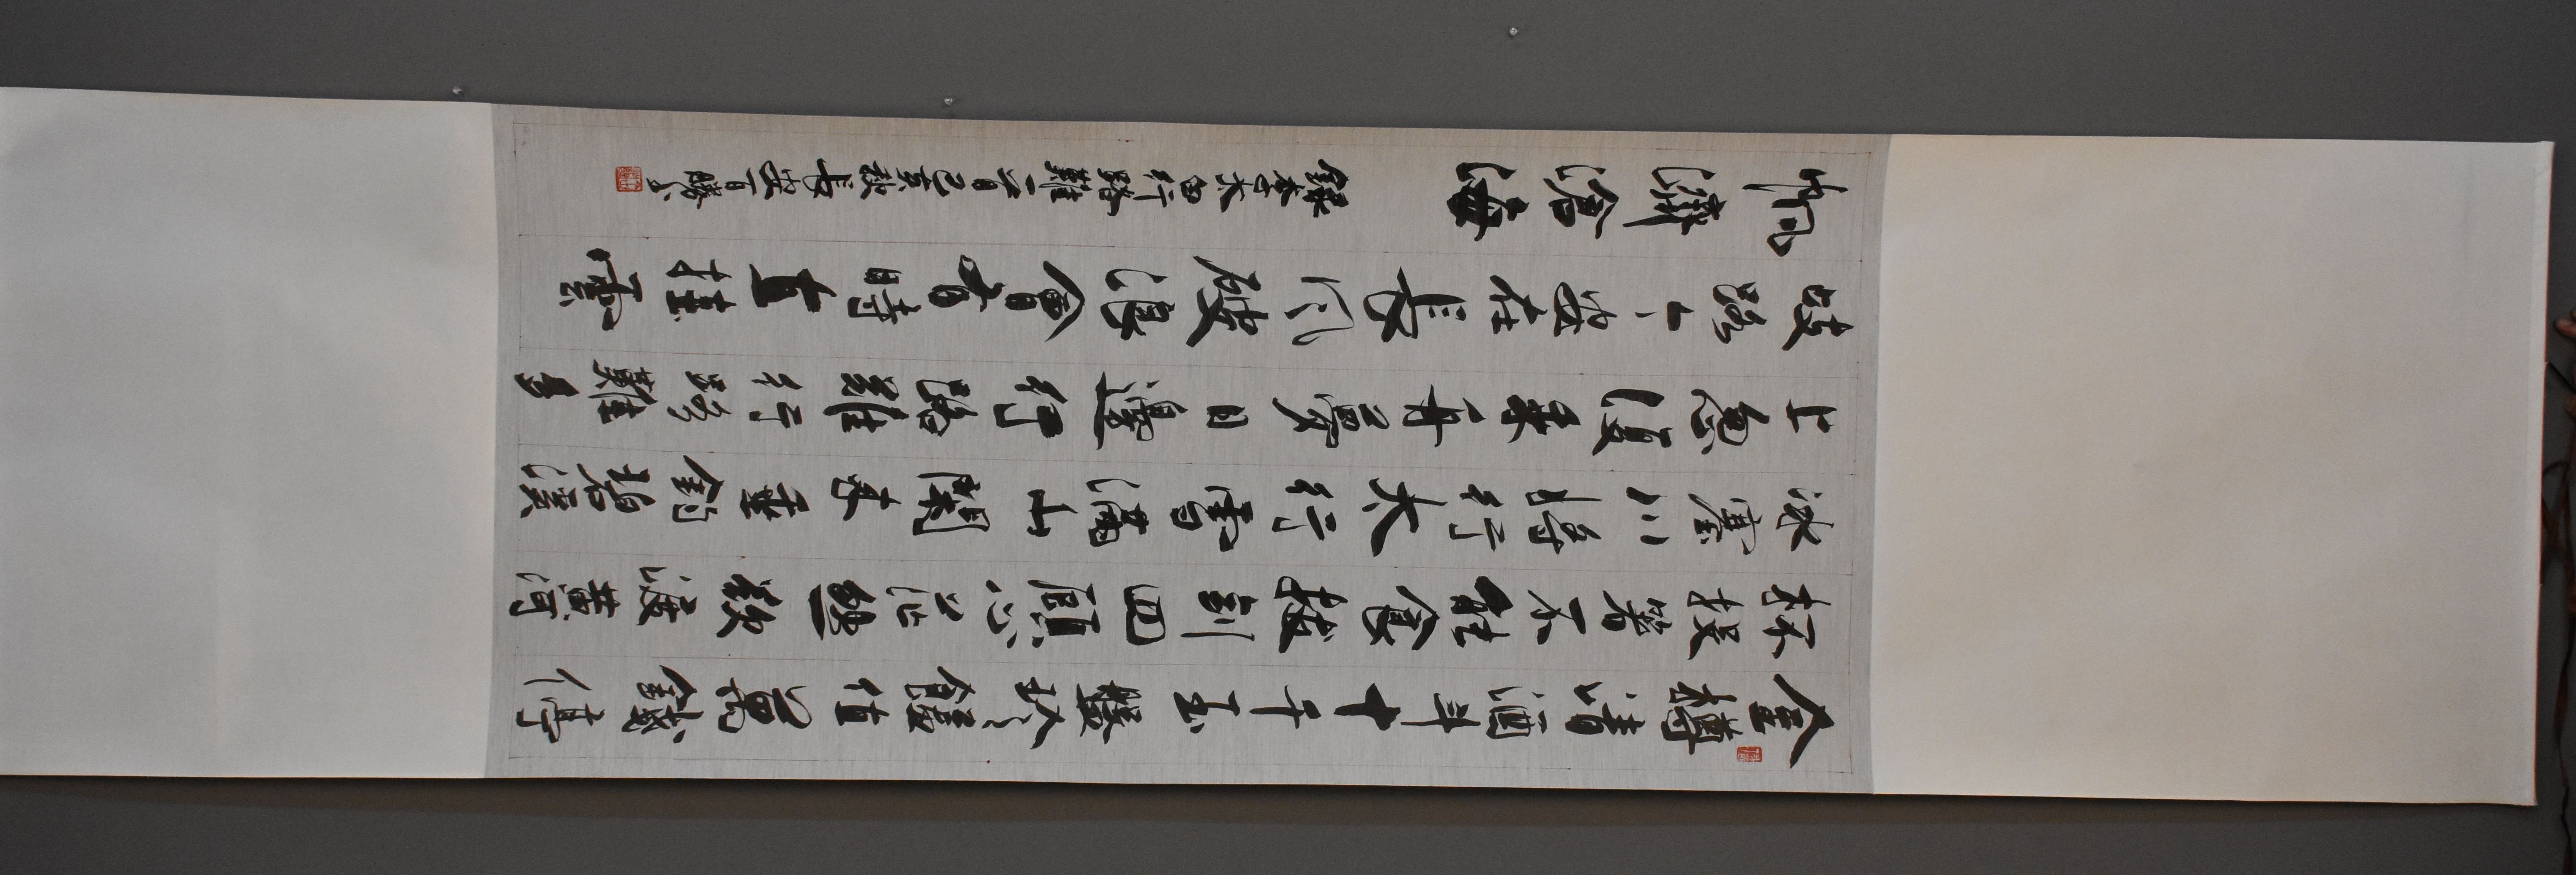 金樽清酒斗十千玉盤珍饈值萬錢停
杯投箸不能食拔劍四顧心茫然欲渡黃河
冰塞川將行太行雪滿山閑來垂釣碧溪
上忽復乘舟夢日邊行路難行路難多
歧路今安在長風破浪會有時直挂雲
帆濟滄海
錄李太白行路難一首己亥秋長安